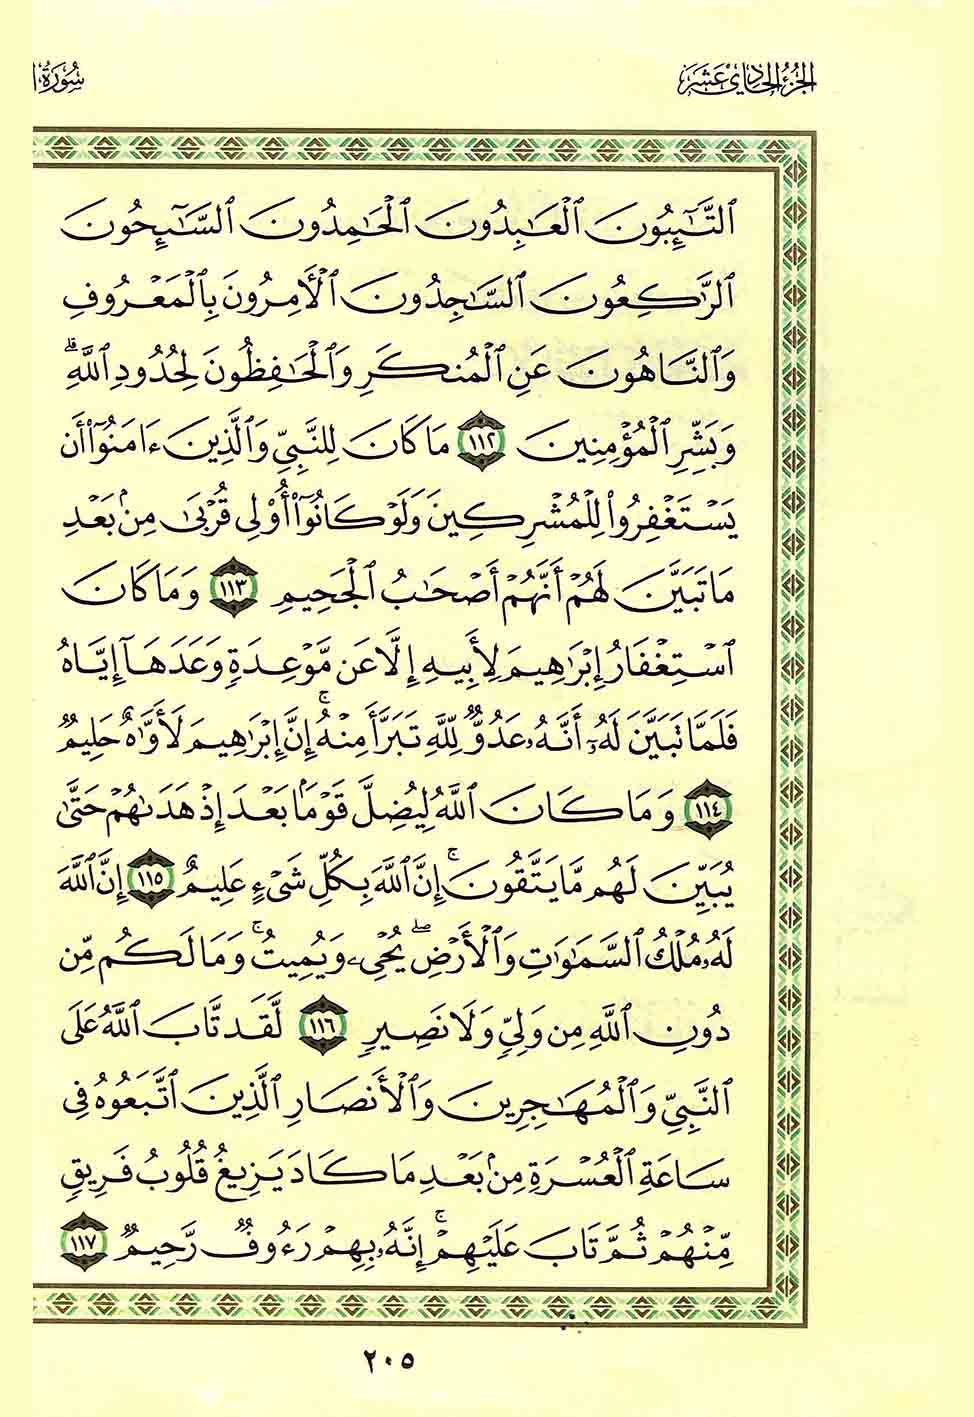 الجزء الحادي عشر
سورة ا
ٱلتَّـٰٓئِبُونَ ٱلْعَـٰبِدُونَ ٱلْحَـٰمِدُونَ ٱلسَّـٰٓئِحُونَ
ٱلرَّٰكِعُونَ ٱلسَّـٰجِدُونَ ٱلْـَٔامِرُونَ بِٱلْمَعْرُوفِ
وَٱلنَّاهُونَ عَنِ ٱلْمُنكَرِ وَٱلْحَـٰفِظُونَ لِحُدُودِ ٱللَّهِ ۗ
وَبَشِّرِ ٱلْمُؤْمِنِينَ ١١٢ مَا كَانَ لِلنَّبِىِّ وَٱلَّذِينَ ءَامَنُوٓا۟ أَن
يَسْتَغْفِرُوا۟ لِلْمُشْرِكِينَ وَلَوْ كَانُوٓا۟ أُو۟لِى قُرْبَىٰ مِنۢ بَعْدِ
مَا تَبَيَّنَ لَهُمْ أَنَّهُمْ أَصْحَـٰبُ ٱلْجَحِيمِ ١١٣ وَمَا كَانَ
ٱسْتِغْفَارُ إِبْرَٰهِيمَ لِأَبِيهِ إِلَّا عَن مَّوْعِدَةٍ وَعَدَهَآ إِيَّاهُ
فَلَمَّا تَبَيَّنَ لَهُۥٓ أَنَّهُۥ عَدُوٌّ لِّلَّهِ تَبَرَّأَ مِنْهُ ۚ إِنَّ إِبْرَٰهِيمَ لَأَوَّٰهٌ حَلِيمٌ
١١٤ وَمَا كَانَ ٱللَّهُ لِيُضِلَّ قَوْمًۢا بَعْدَ إِذْ هَدَىٰهُمْ حَتَّىٰ
يُبَيِّنَ لَهُم مَّا يَتَّقُونَ ۚ إِنَّ ٱللَّهَ بِكُلِّ شَىْءٍ عَلِيمٌ ١١٥ إِنَّ ٱللَّهَ
لَهُۥ مُلْكُ ٱلسَّمَـٰوَٰتِ وَٱلْأَرْضِ ۖ يُحْىِۦ وَيُمِيتُ ۚ وَمَا لَكُم مِّن
دُونِ ٱللَّهِ مِن وَلِىٍّ وَلَا نَصِيرٍ ١١٦ لَّقَد تَّابَ ٱللَّهُ عَلَى
ٱلنَّبِىِّ وَٱلْمُهَـٰجِرِينَ وَٱلْأَنصَارِ ٱلَّذِينَ ٱتَّبَعُوهُ فِى
سَاعَةِ ٱلْعُسْرَةِ مِنۢ بَعْدِ مَا كَادَ يَزِيغُ قُلُوبُ فَرِيقٍ
مِّنْهُمْ ثُمَّ تَابَ عَلَيْهِمْ ۚ إِنَّهُۥ بِهِمْ رَءُوفٌ رَّحِيمٌ ١١٧
٢٠٥